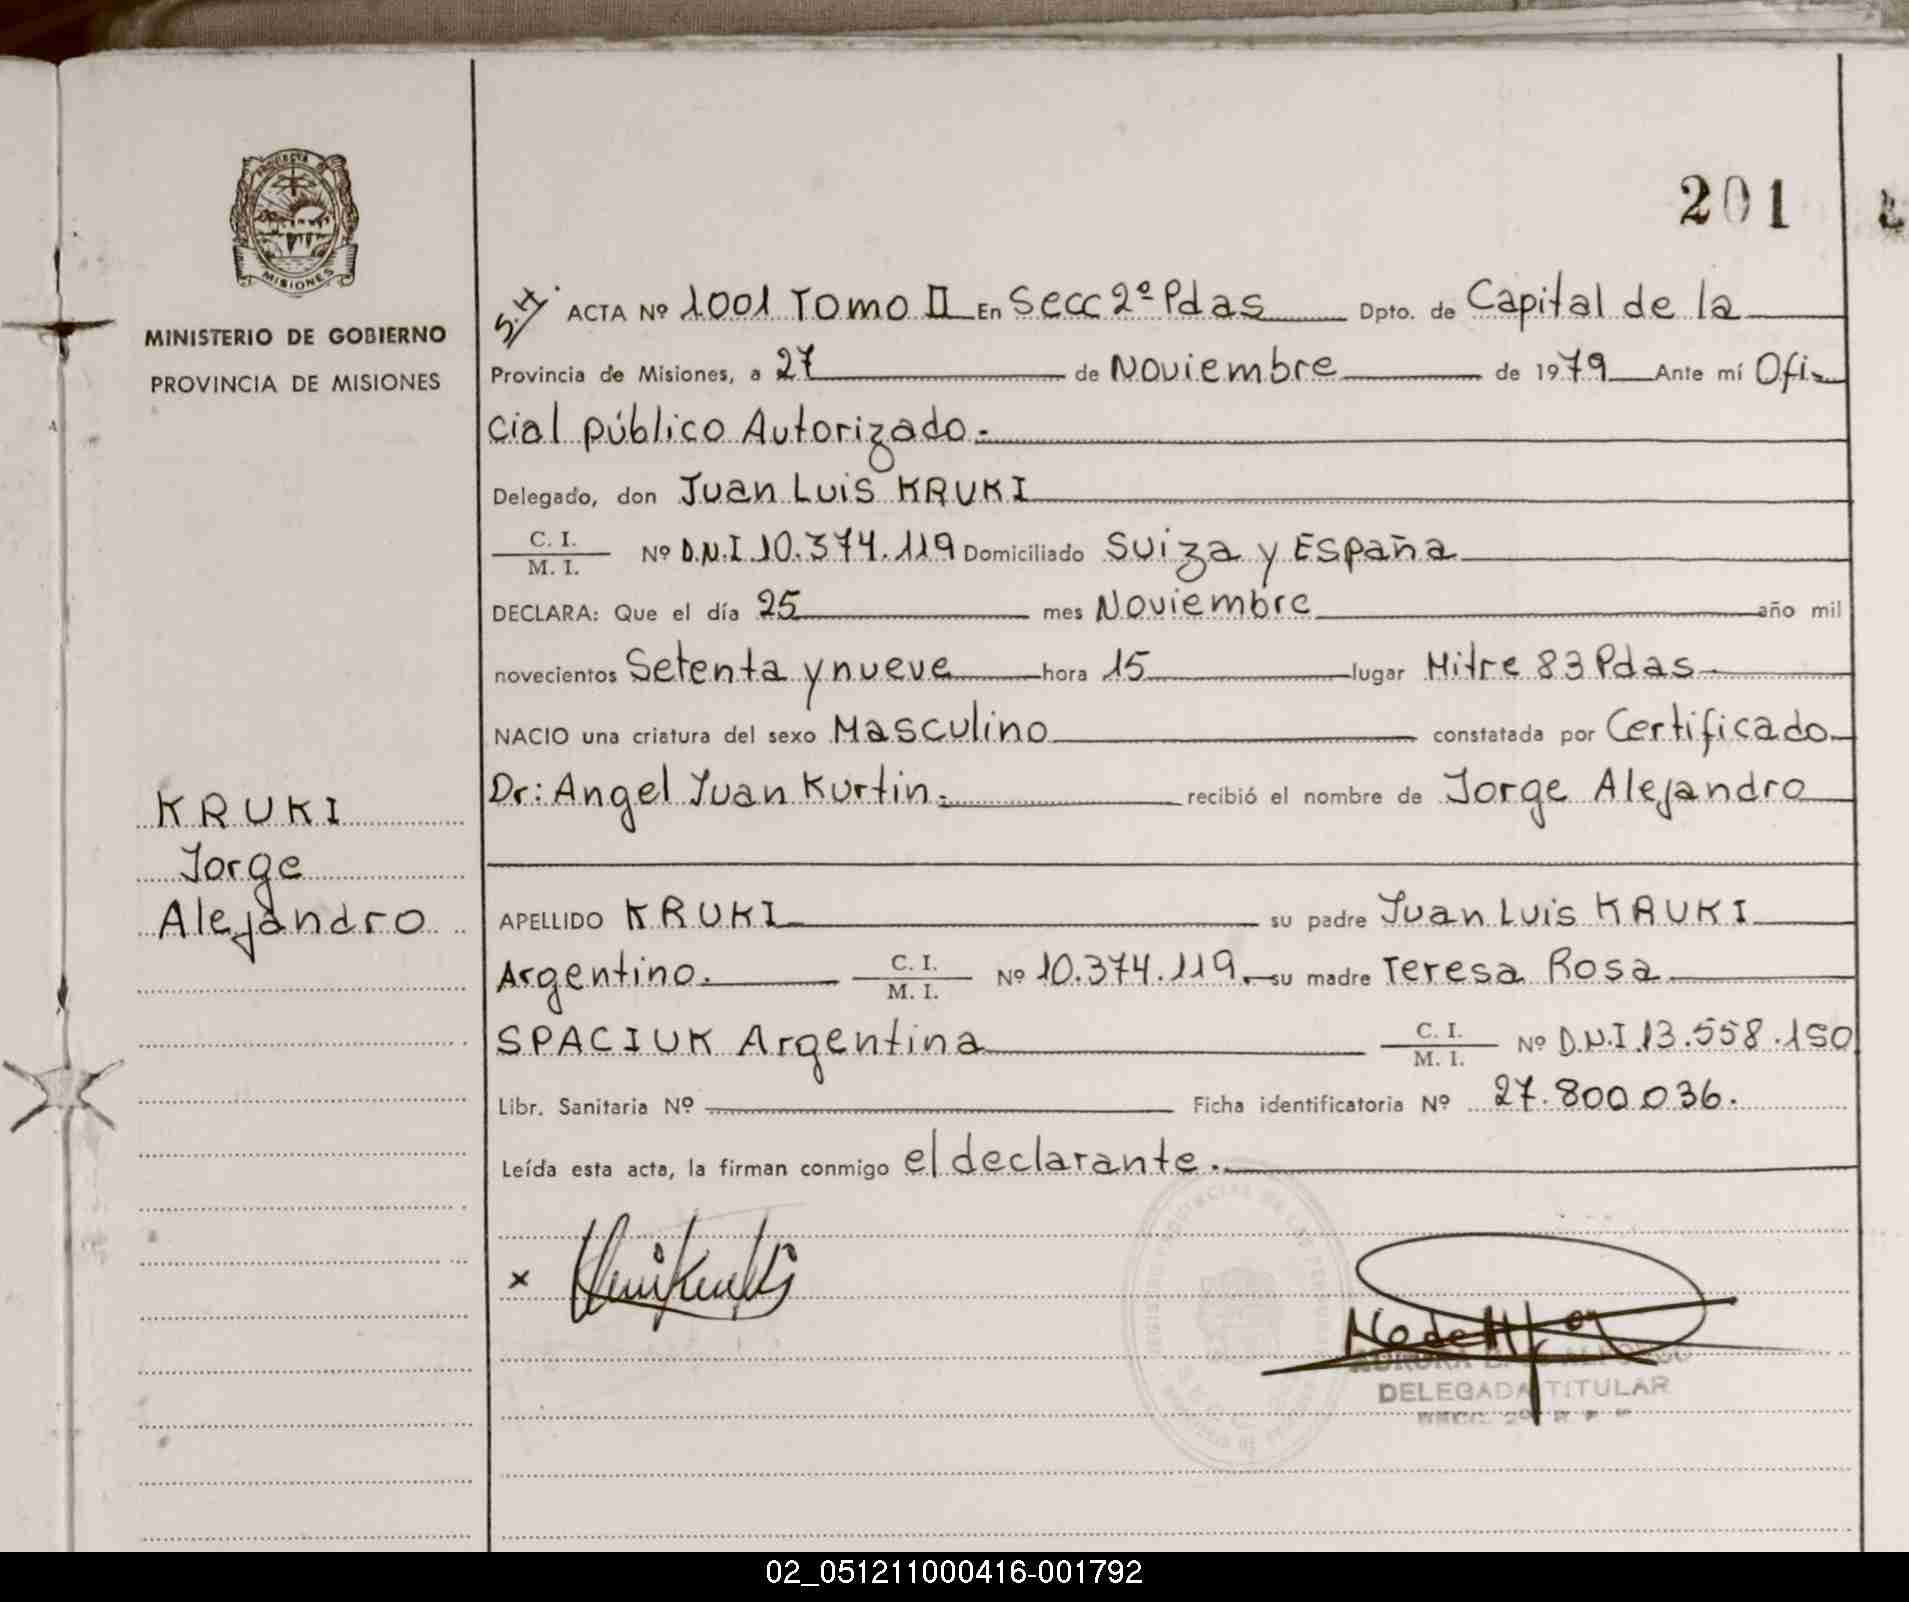 201
MISIONES
MINISTERIO DE GOBIERNO
PROVINCIA DE MISIONES
KRUKI
Jorge
Alejandro
S.H. ACTA Nº 1001 Tomo II En Secc 2º Pdas Dpto. de Capital de la
Provincia de Misiones, a 27 de Noviembre de 1979 Ante mí Ofi-
cial público Autorizado.-
Delegado, don Juan Luis KRUKI
C. I.
M. I. Nº D.N.I 10.374.119 Domiciliado Suiza y España
DECLARA: Que el día 25 mes Noviembre año mil
novecientos Setenta y nueve hora 15 lugar Mitre 83 Pdas
NACIO una criatura del sexo Masculino constatada por Certificado
Dr: Angel Juan Kurtin.- recibió el nombre de Jorge Alejandro
APELLIDO KRUKI su padre Juan Luis KRUKI
Argentino. C. I. M. I. Nº 10.374.119. su madre Teresa Rosa
SPACIUK Argentina C. I. M. I. Nº D.N.I 13.558.150
Libr. Sanitaria Nº Ficha identificatoria Nº 27.800.036.
Leída esta acta, la firman conmigo el declarante.
x
DELEGADA TITULAR
02_051211000416-001792